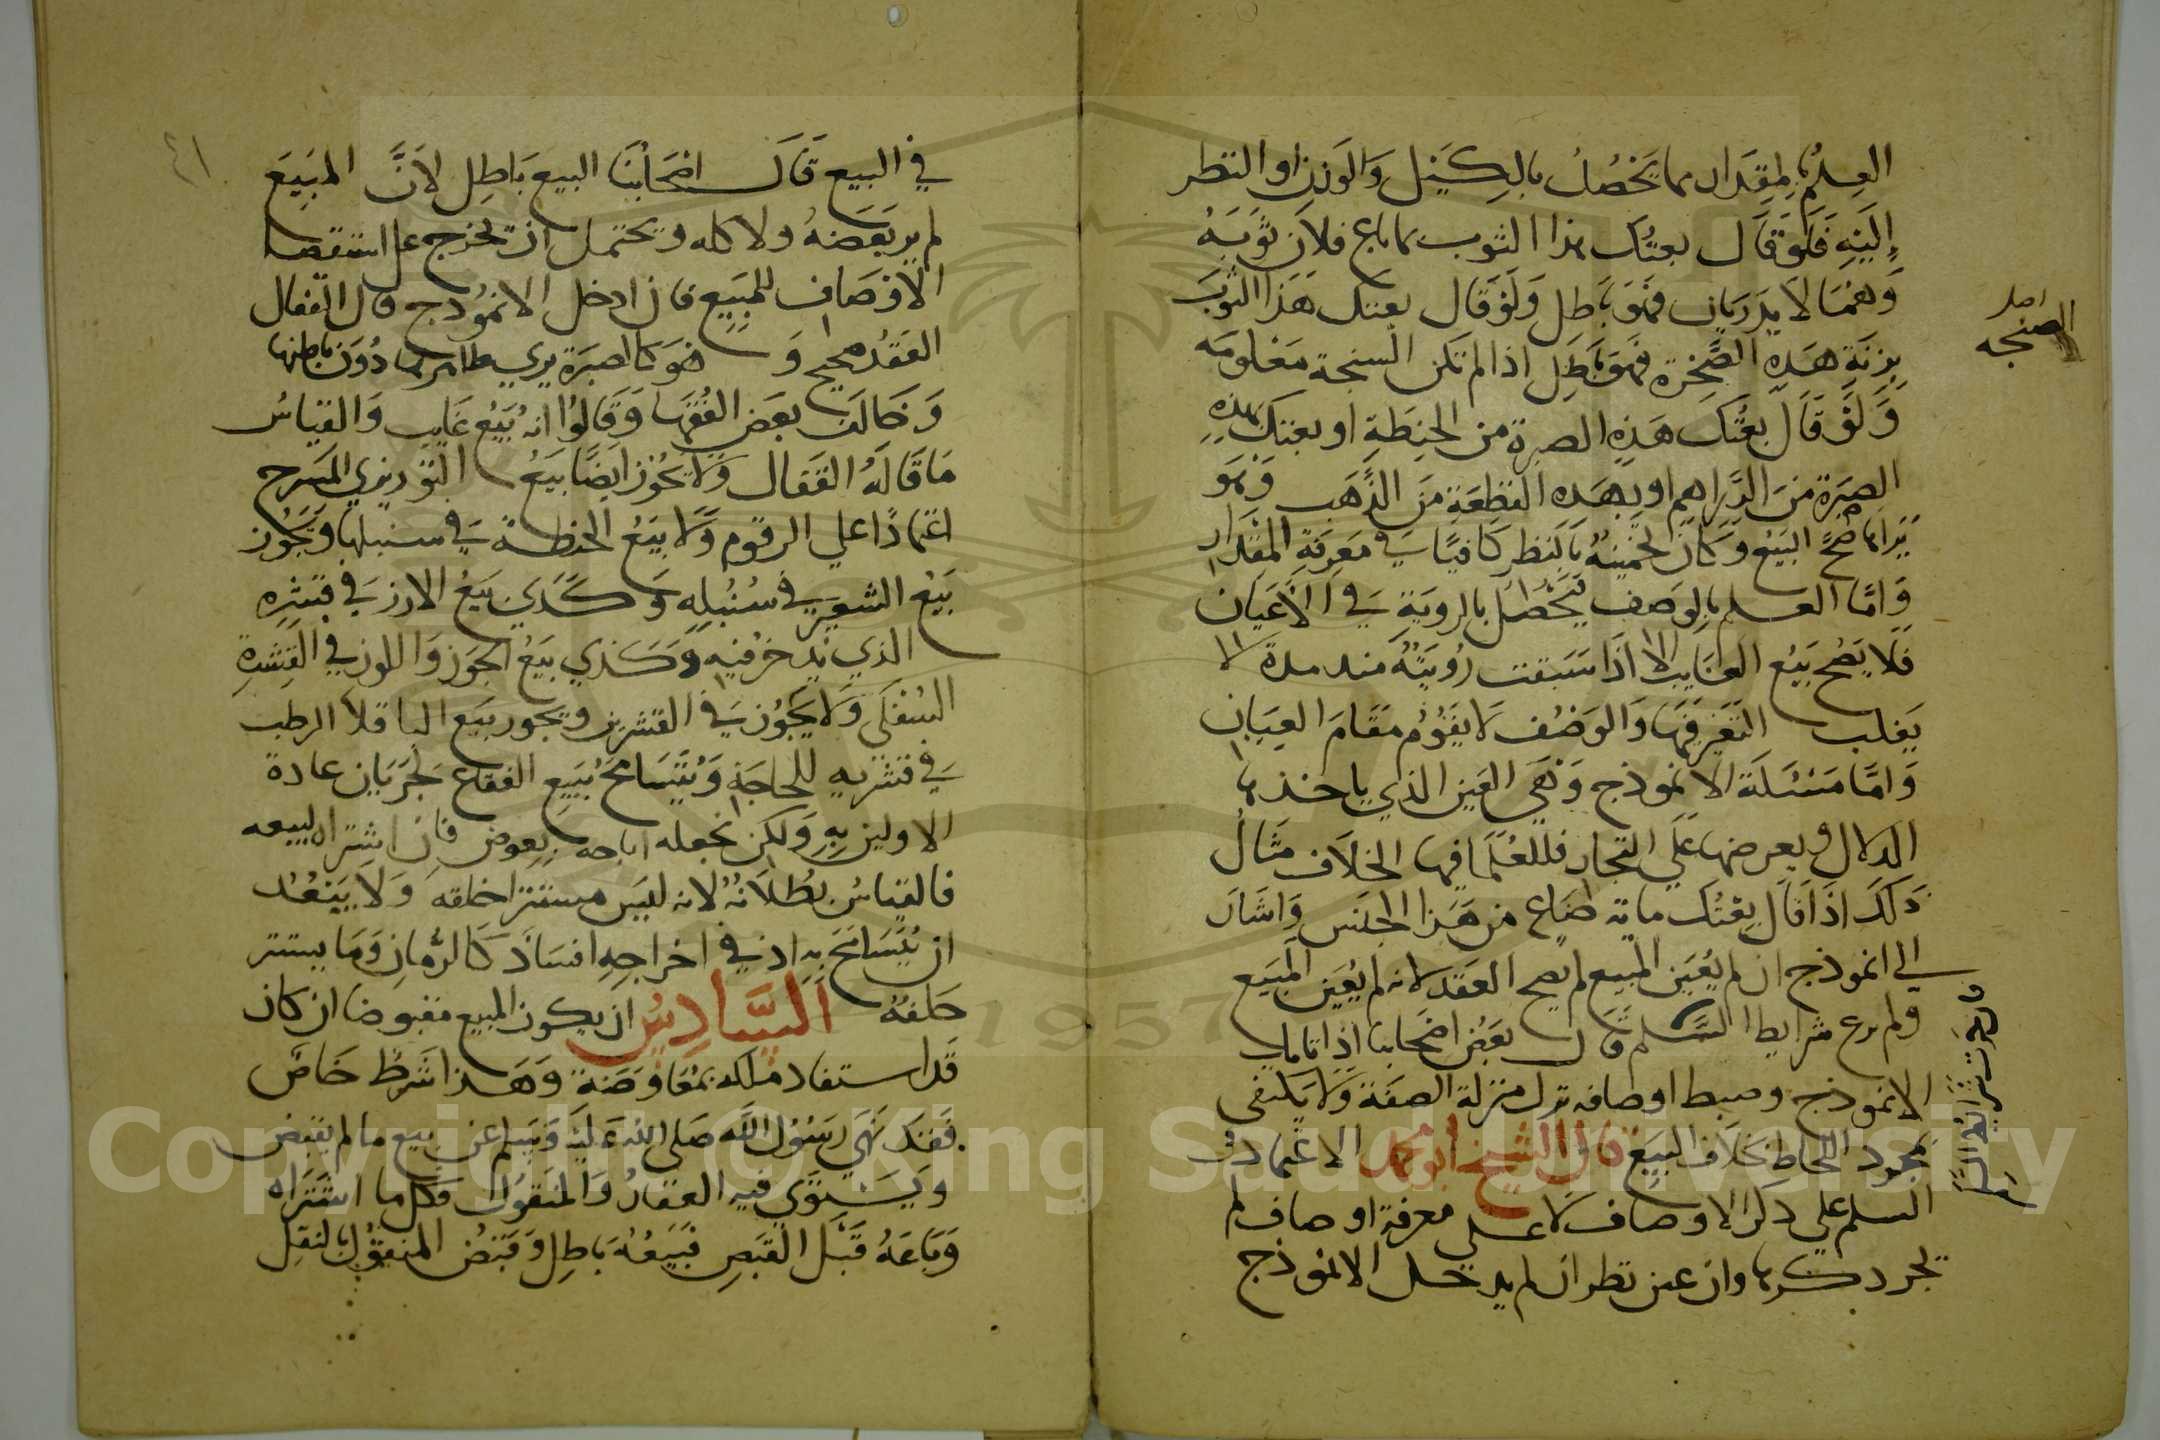 العلم بالمقدار مما يحصل بالكيل والوزن او النظر
إليه فلو قال بعتك هذا الثوب بما باع فلان ثوبه
وهما لا يدريان فهو باطل ولو قال بعتك هذا الثوب
بزنة هذه الصخرة فهو باطل اذا لم تكن السنجة معلومه
اصله
الصنجه
ولو قال بعتك هذه الصبرة من الحنطة او بعتك بهذه
الصبرة من الدراهم او بهذه القطعة من الذهب وهو
يراها صح البيع وكان تخمينه بالنظر كافيا في معرفة المقدار
واما العلم بالوصف يتحصل بالروية في الاعيان
فلا يصح بيع الغايب الا اذا سبقت رؤيته منذ مدة لا
يغلب التغير فيها والوصف لا يقوم مقام العيان
واما مسئلة الانموذج وهي العين الذي ياخذها
الدلال ويعرضها علي التجار فللعلما فيها الخلاف مثال
ذلك اذا قال بعتك ماية صاع من هذا الجنس واشار
الي انموذج ان لم يعين المبيع لم يصح العقد لانه لم يعين المبيع
ولم يرع شرايط السلم قال بعض اصحابنا اذا تامل
الانموذج وضبط اوصافه نزل منزلة الصفة ولا يكتفى
بمجرد اللحاظ بخلاف البيع قال الشيخ ابو محمد الاعتماد في
السلم علي ذكر الاوصاف لا علي معرفة اوصاف لم
تجر ذكرها وان عين نظر ان لم يدخل الانموذج
في البيع قال اصحابنا البيع باطل لان المبيع
٤١
لم ير بعضه ولا كله ويحتمل ان يخرج على استقصا
الاوصاف للمبيع فان ادخل الانموذج قال القفال
العقد صحيح و هو كالصبرة يري ظاهرها دون باطنها
وخالف بعض الفقها وقالوا انه بيع غايب والقياس
ما قاله القفال ولا يجوز ايضا بيع التوزي المدرج
اعتمادا علي الرقوم ولا بيع الحنطة في سنبلها ويجوز
بيع الشعير في سنبله وكذي بيع الارز في قشره
الذي يدخر فيه وكذي بيع الجوز واللوز في القشرة
السفلى ولا يجوز في القشرين ويجوز بيع الباقلا الرطب
في قشريه للحاجة ويتسامح ببيع الفقاع لجريان عادة
الاولين به ولكن نجعله اباحه بعوض فان اشتراه ليبيعه
فالقياس بطلانه لانه ليس مستترا خلقه ولا يبعد
ان يتسامح به اذ في اخراجه افساد كالرمان وما يستتر
خلقه السادس ان يكون المبيع مقبوضا ان كان
قد استفاد ملكه بمعاوضة وهذا شرط خاص
فقد نهي رسول الله صلى الله عليه وسلم عن بيع ما لم يقبض
ويستوي فيه العقار والمنقول فكل ما اشتراه
وباعه قبل القبض فبيعه باطل وقبض المنقول بالنقل
Copyright © King Saud University
1957